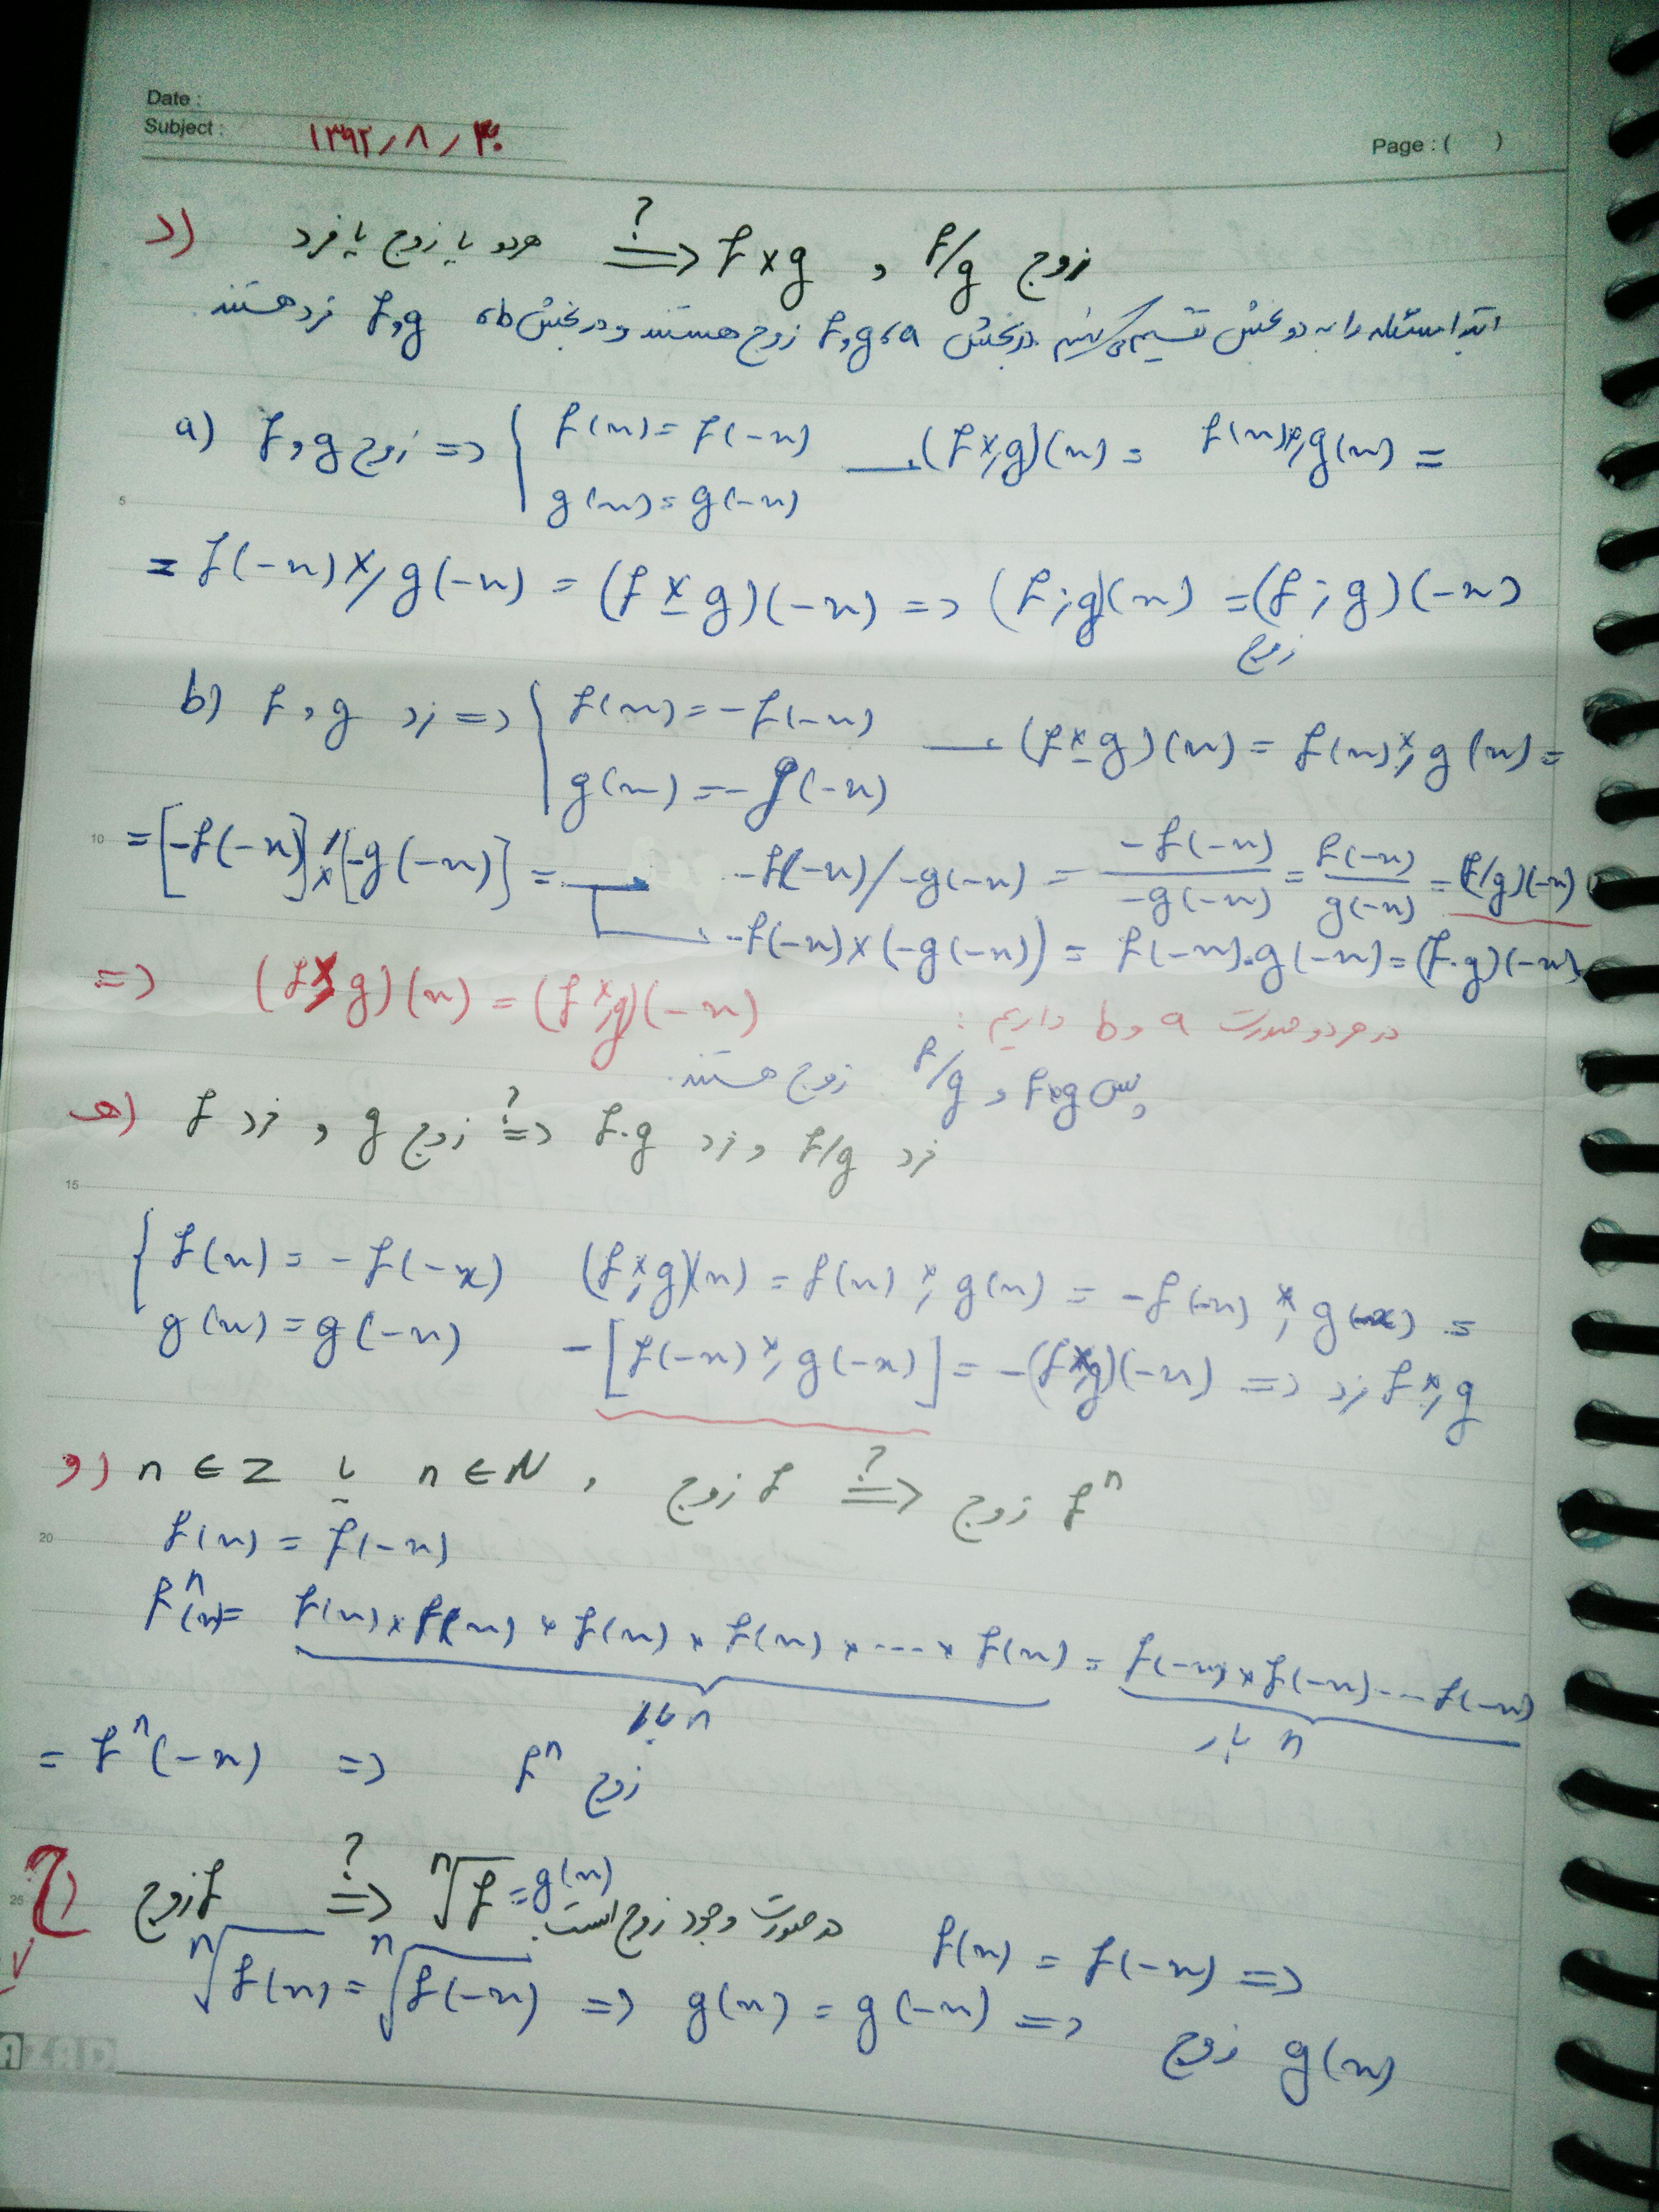 Date :
Subject : ۱۳۹۲/۸/۳۰
Page : ( )
د) هردو یا زوج یا فرد ⇒? f×g , f/g زوج
ابتدا مسئله را به دو بخش تقسیم می‌کنیم. در بخش a، f,g زوج هستند و در بخش b، f,g فرد هستند.
a) f,g زوج => { f(x) = f(-x) → (f ×,/ g)(x) = f(x) ×,/ g(x) =
g(x) = g(-x)
= f(-x) ×,/ g(-x) = (f ×,/ g)(-x) => (f ×,/ g)(x) = (f ×,/ g)(-x)
زوج
b) f,g فرد => { f(x) = -f(-x) → (f ×,/ g)(x) = f(x) ×,/ g(x) =
g(x) = -g(-x)
5
10
= [-f(-x)] ×,/ [-g(-x)] = → -f(-x)/-g(-x) = -f(-x)/-g(-x) = f(-x)/g(-x) = (f/g)(-x)
→ -f(-x)×(-g(-x)) = f(-x).g(-x) = (f.g)(-x)
در هر دو صورت a و b داریم :
=> (f ×,/ g)(x) = (f ×,/ g)(-x)
پس f×g و f/g زوج هستند.
ه) f فرد , g زوج ⇒? f.g فرد و f/g فرد
15
{ f(x) = -f(-x) (f ×,/ g)(x) = f(x) ×,/ g(x) = -f(-x) ×,/ g(-x) =
g(x) = g(-x) -[f(-x) ×,/ g(-x)] = -(f ×,/ g)(-x) => فرد f ×,/ g
و) n ∈ Z یا n ∈ N , f زوج ⇒? f^n زوج
20
f(x) = f(-x)
f^n(x) = f(x) × f(x) × f(x) × f(x) × ... × f(x) = f(-x) × f(-x) ... f(-x)
n بار n بار
= f^n(-x) => f^n زوج
25
ز) f زوج ⇒? ⁿ√f = g(x) در صورت وجود زوج است. f(x) = f(-x) =>
ⁿ√f(x) = ⁿ√f(-x) => g(x) = g(-x) => g(x) زوج
AZAD